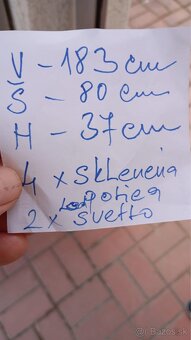 V - 183 cm
Š - 80 cm
H - 37 cm
4 x sklenená
polica
2 x svetlo
bazar.sk